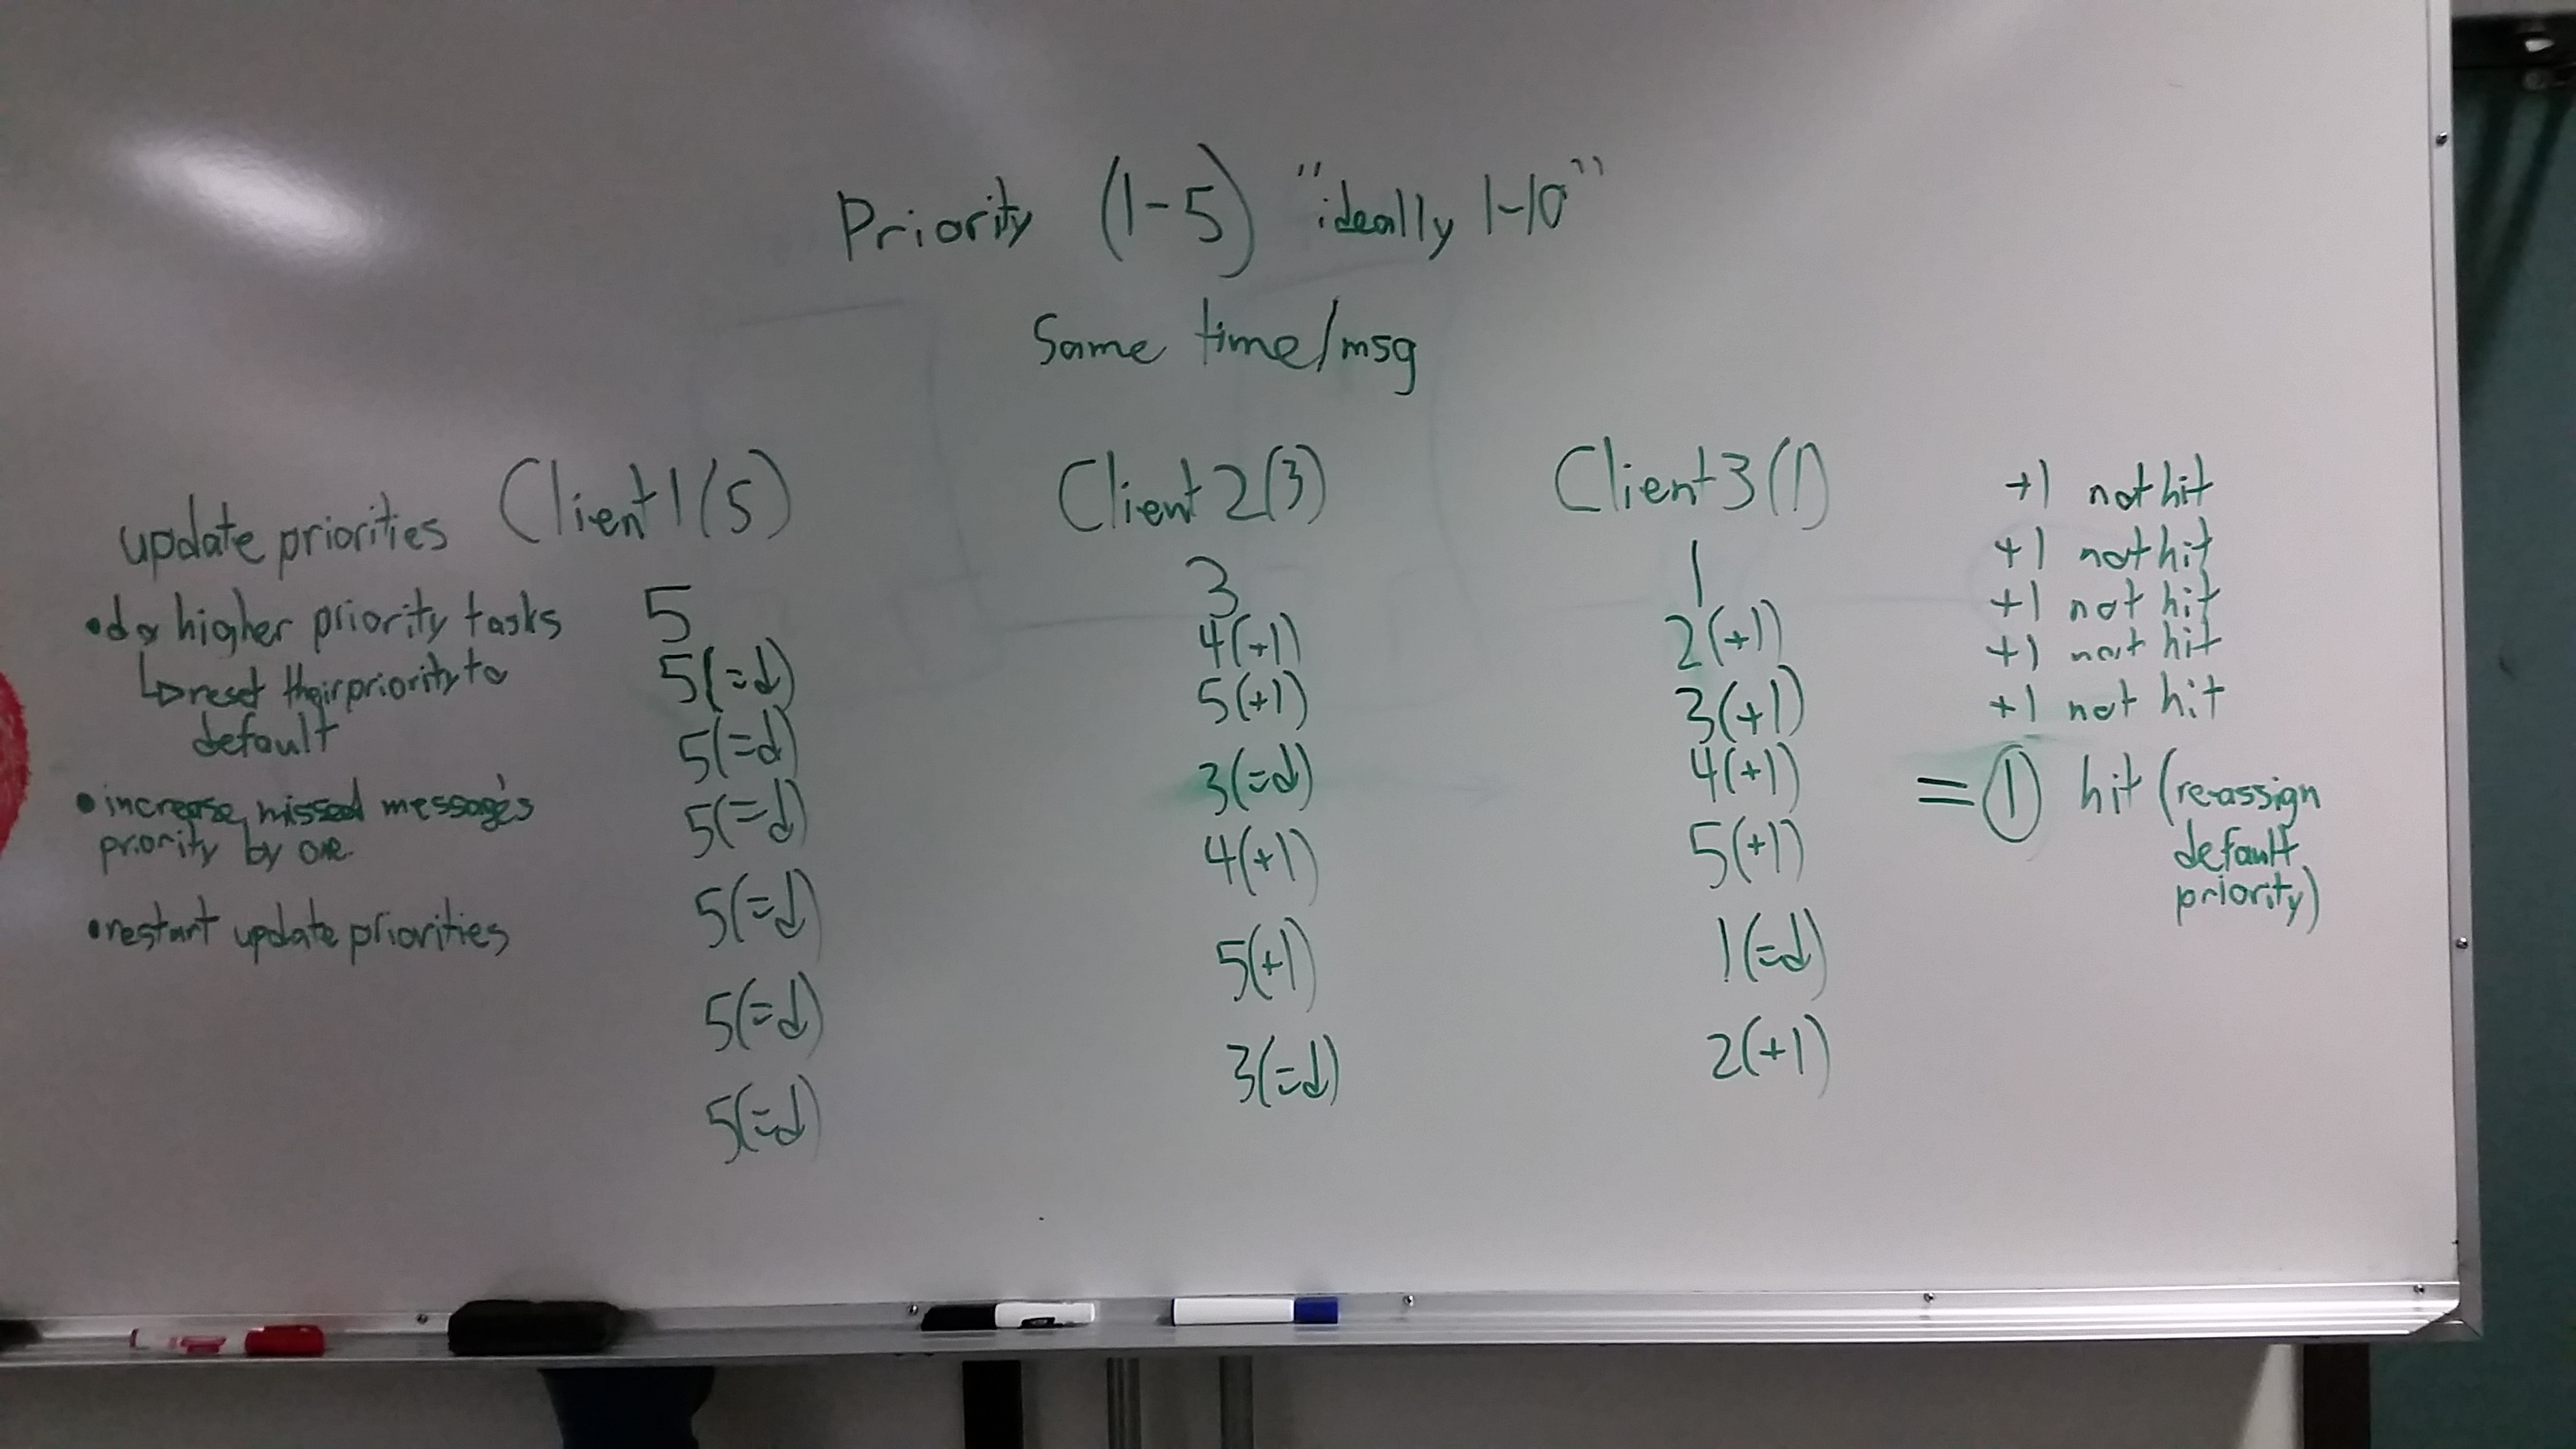 Priority (1-5) "ideally 1-10"
Same time/msg
update priorities
• do higher priority tasks
↳ reset their priority to
default
• increase missed message's
priority by one.
• restart update priorities
Client 1 (5)
5
5(=d)
5(=d)
5(=d)
5(=d)
5(=d)
5(=d)
Client 2 (3)
3
4(+1)
5(+1)
3(=d)
4(+1)
5(+1)
3(=d)
Client 3 (1)
1
2(+1)
3(+1)
4(+1)
5(+1)
1(=d)
2(+1)
+1 not hit
+1 not hit
+1 not hit
+1 not hit
+1 not hit
= 1 hit (re-assign
default
priority)